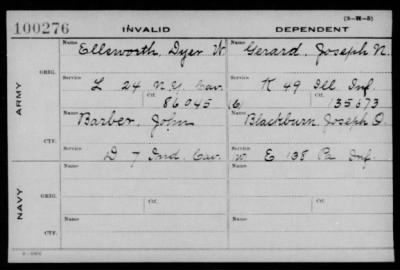 (3-W-5)
100276 INVALID DEPENDENT
Name Name
Ellsworth, Dyer W. Gerard, Joseph N.
ARMY
ORIG.
Service Service
L 24 N.Y. Cav. K 49 Ill Inf.
Ctf. Ctf.
86045 135673
Name Name
Barber, John Blackburn, Joseph O.
CTF.
Service
D 7 Ind. Cav. W. E 138 Pa Inf.
NAVY
ORIG.
Name Name
Service Service
Ctf. Ctf.
CTF.
Name Name